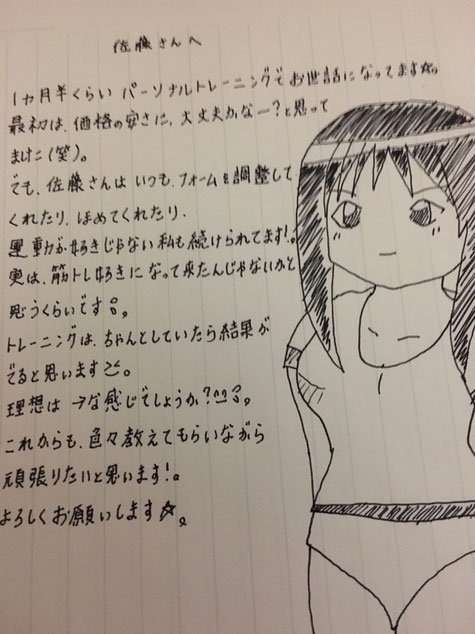 佐藤さんへ
1ヵ月半くらいパーソナルトレーニングでお世話になってます☆。
最初は、価格の安さに、大丈夫かなー?と思って
ましたけど(笑)。
でも、佐藤さんはいつも、フォームを調整して
くれたり、ほめてくれたり、
運動が好きじゃない私も続けられてます!。
実は、筋トレ好きになって来たんじゃないかと
思うくらいです。
トレーニングは、ちゃんとしていたら結果が
でると思います。
理想は→な感じでしょうか?。
これからも、色々教えてもらいながら
頑張りたいと思います!。
よろしくお願いします☆。